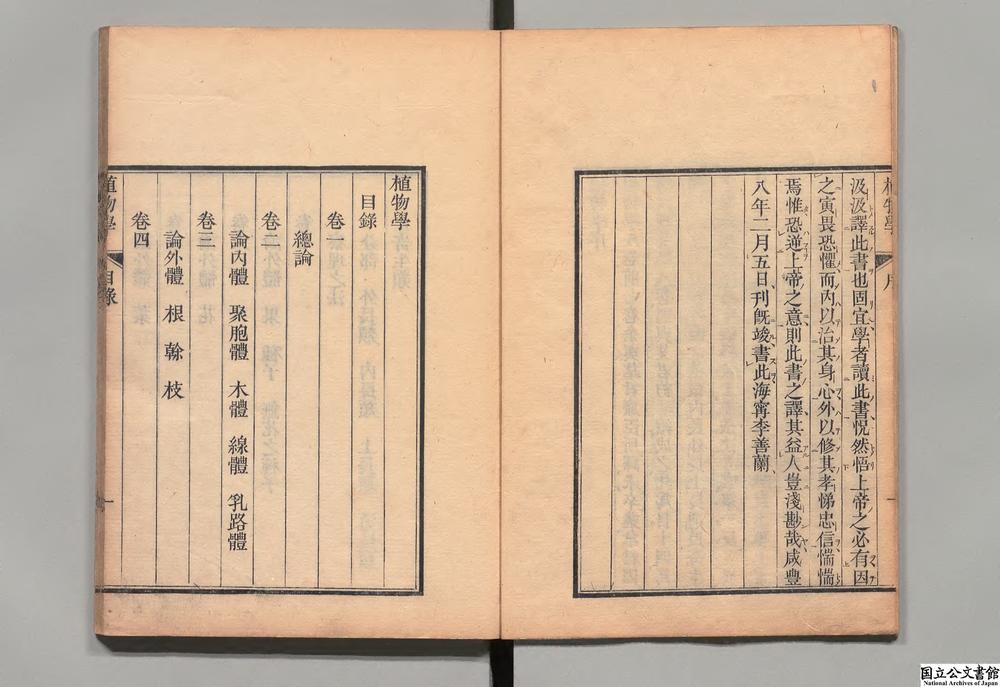 汲汲譯此書也固宜學者讀此書恍然悟上帝之必有因
之寅畏恐懼而內以治其身心外以修其孝悌忠信惴惴
焉惟恐逆上帝之意則此書之譯其益人豈淺尠哉咸豐
八年二月五日刊既竣書此海寧李善蘭
植物學 序
植物學
目錄
卷一
總論
卷二
論內體 聚胞體 木體 線體 乳路體
卷三
論外體 根 榦 枝
卷四
植物學 目錄 一
国立公文書館
National Archives of Japan